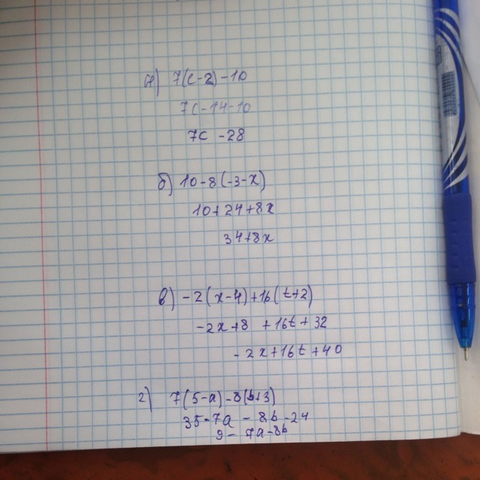 а) 7(c-2)-10
7c-14-10
7c -28
б) 10-8(-3-x)
10+24+8x
34+8x
в) -2(x-4)+16(t+2)
-2x+8 +16t+32
-2x+16t+40
г) 7(5-a)-8(b+3)
35-7a-8b-24
9-7a-8b